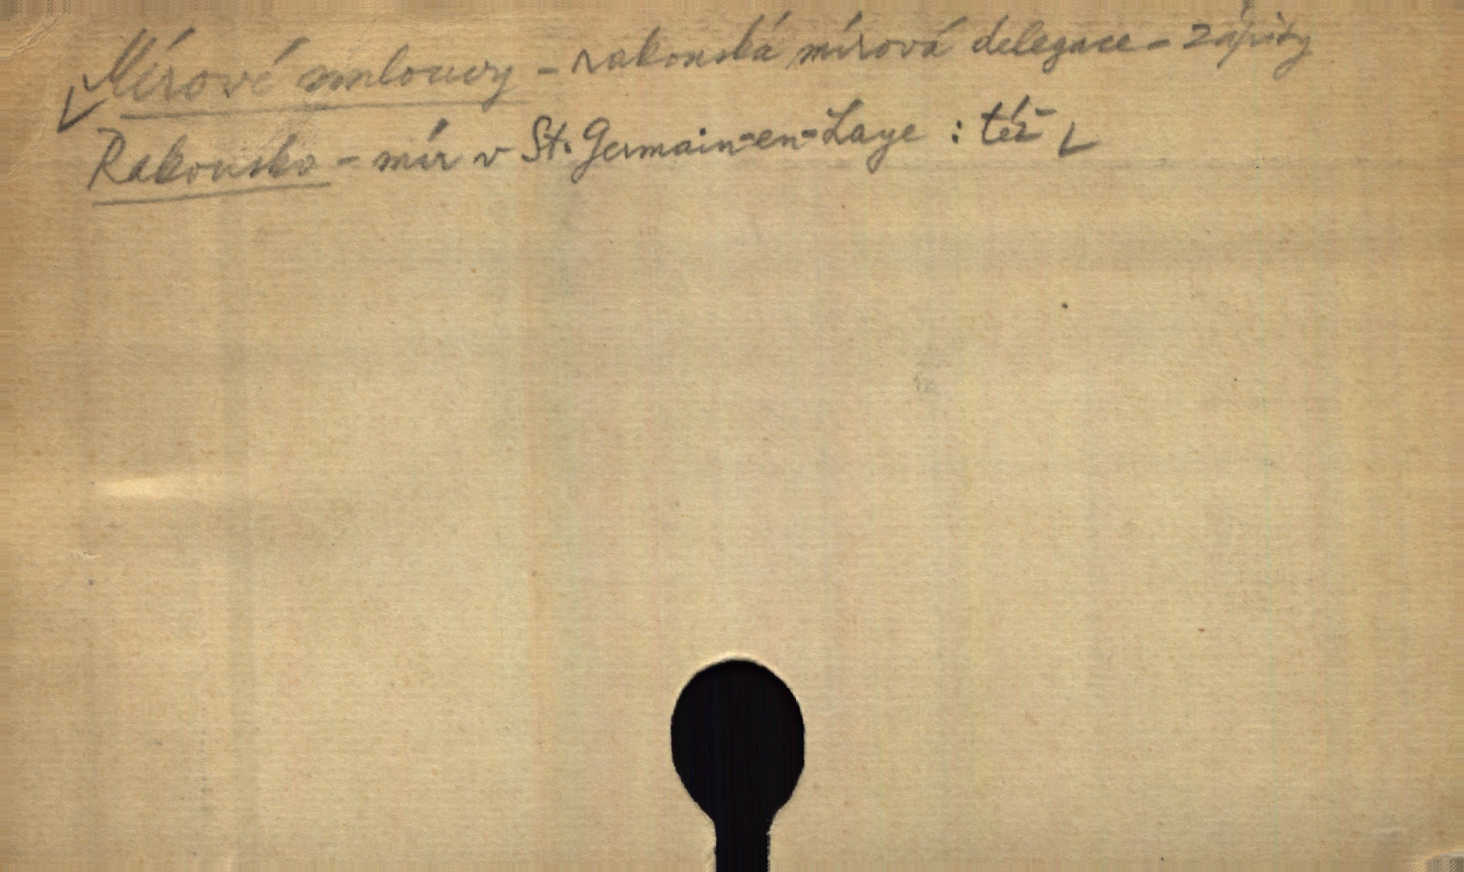 Mírové smlouvy - rakouská mírová delegace - zápisy
Rakousko - mír v St. Germain-en-Laye : též